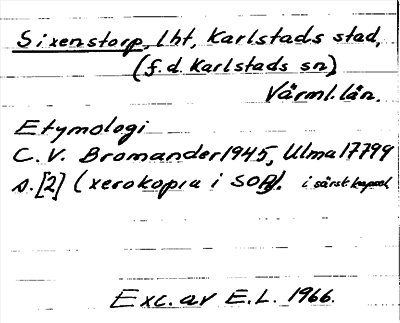 Sixenstorp, lht, Karlstads stad,
(f.d. Karlstads sn)
Värml. län.
Etymologi
C. V. Bromander 1945, Ulma 17799
s. [2] (xerokopia i SOA). i särsk. kapsel
Exc. av E. L. 1966.